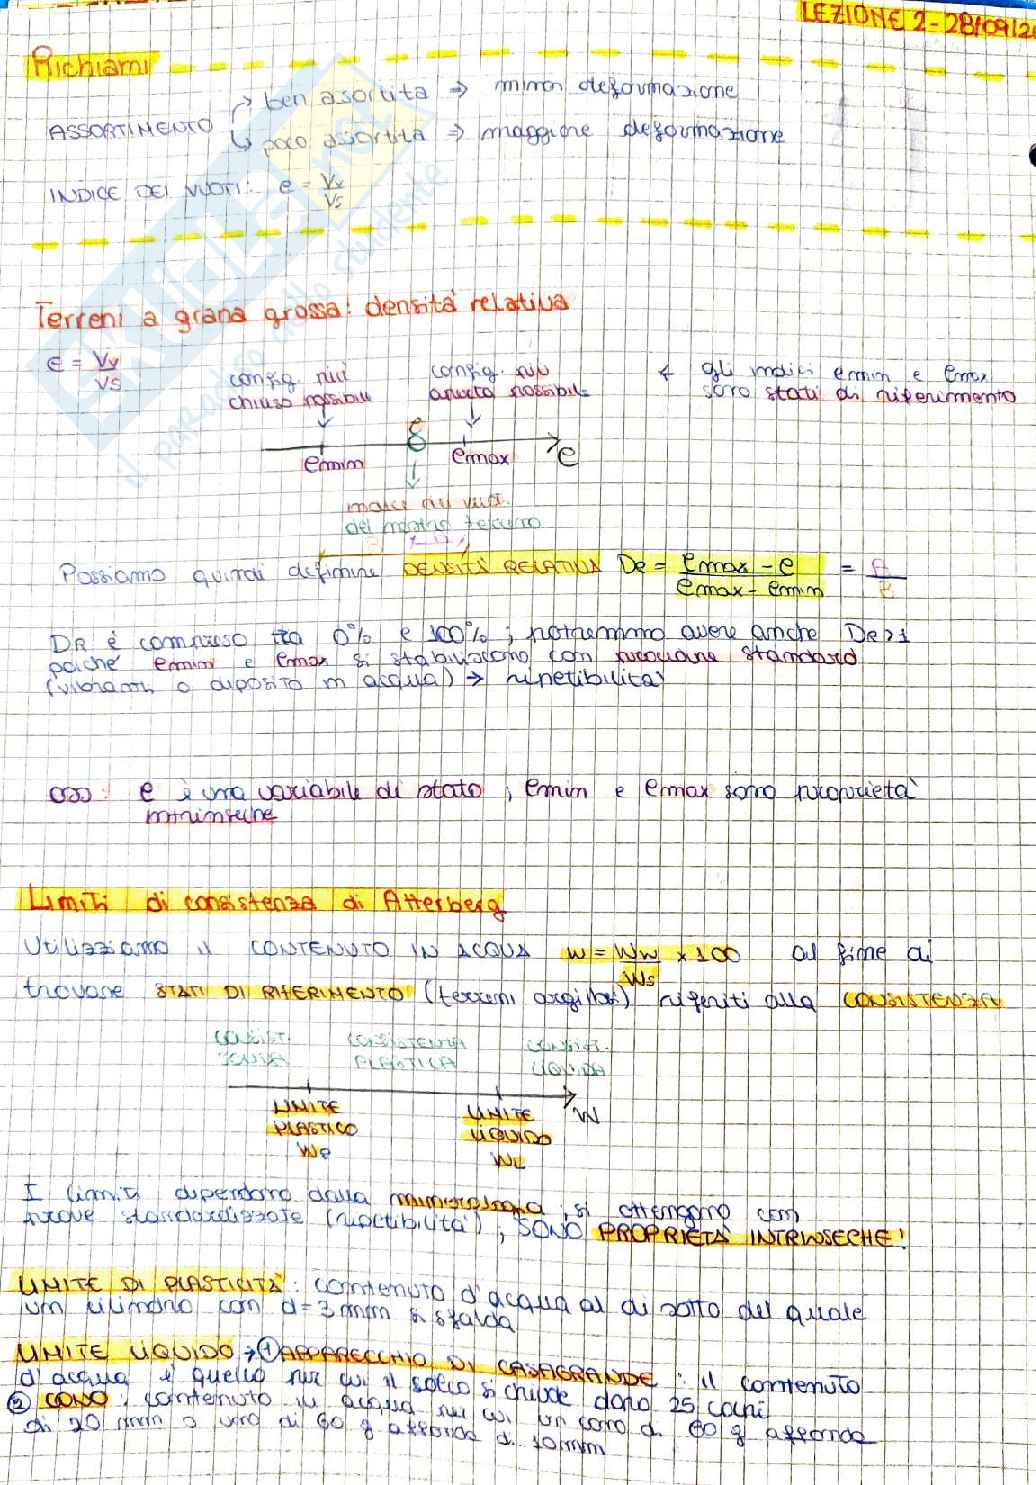 LEZIONE 2 - 28/09/20
Richiami
ASSORTIMENTO
ben assortita => minor deformazione
poco assortita => maggiore deformazione
INDICE DEI VUOTI: e = Vv/Vs
Terreni a grana grossa: densità relativa
e = Vv/Vs
config. più chiusa possibile
config. più aperta possibile
gli indici emin e emax
sono stati di riferimento
emin e emax e
indice dei vuoti
del nostro terreno
Possiamo quindi definire DENSITÀ RELATIVA DR = emax - e / emax - emin = A / B
DR è compreso tra 0% e 100%; potremmo avere anche DR>1
poiché emin e emax si stabiliscono con procedure standard
(vibrazioni o deposito in acqua) → ripetibilità
oss: e è una variabile di stato, emin e emax sono proprietà
intrinseche
Limiti di consistenza di Atterberg
Utilizziamo il CONTENUTO IN ACQUA w = Ww/Ws x 100 al fine di
trovare STATI DI RIFERIMENTO (terreni argillosi) riferiti alla CONSISTENZA
CONSIST. SOLIDA
CONSISTENZA PLASTICA
CONSIST. LIQUIDA
LIMITE PLASTICO WP
LIMITE LIQUIDO WL
W
I limiti dipendono dalla mineralogia, si ottengono con
prove standardizzate (ripetibilità), SONO PROPRIETÀ INTRINSECHE!
LIMITE DI PLASTICITÀ: contenuto d'acqua al di sotto del quale
un cilindro con d=3mm si sfalda
LIMITE LIQUIDO → ① APPARECCHIO DI CASAGRANDE: il contenuto
d'acqua è quello per cui il solco si chiude dopo 25 colpi
② CONO: contenuto in acqua per cui un cono di 80 g affonda
di 20 mm o uno di 60 g affonda di 10mm